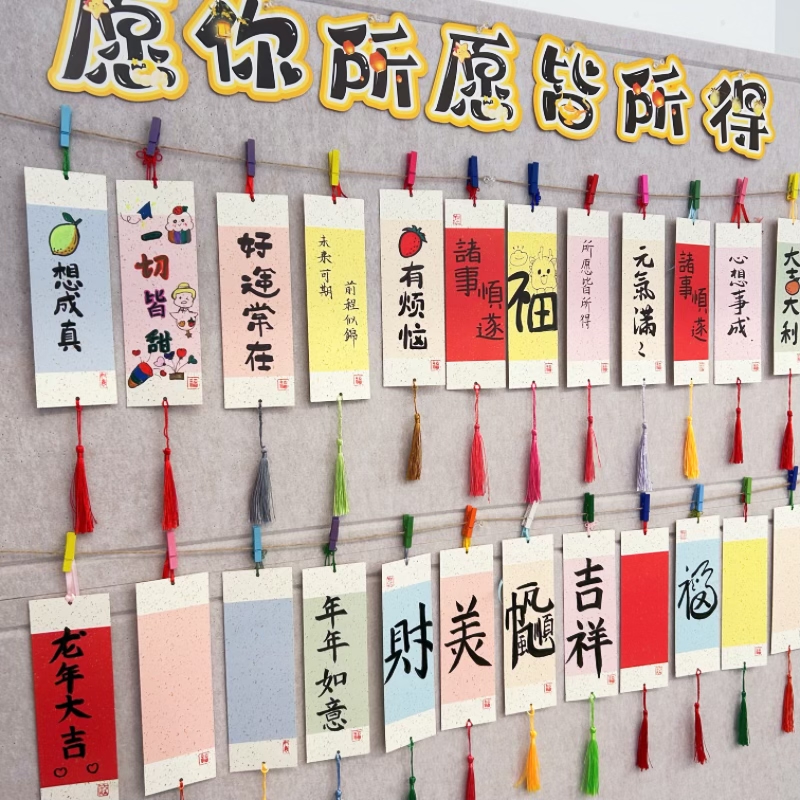 愿你所愿皆所得
想成真
一切皆甜
好運常在
未来可期
前程似錦
有烦恼
諸事
順遂
福
所愿皆所得
元氣滿々
諸事
順遂
心想事成
大吉
大利
龙年大吉
年年如意
財
美
吉祥
福